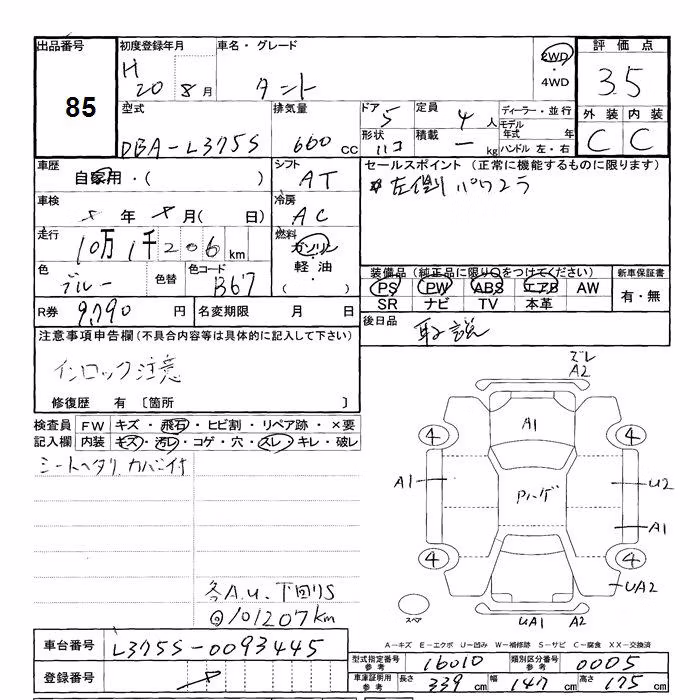 出品番号
85
初度登録年月
H 20 8 月
車名・グレード
タント
2WD
・4WD
評価点
3.5
外装 内装
C C
型式
DBA-L375S
排気量
660 cc
ドア 5
定員 4 人
形状 ハコ
積載 ー kg
ディーラー・並行
モデル年式 年
ハンドル 左・右
車歴
自家用・( )
シフト
AT
セールスポイント (正常に機能するものに限ります)
#左側パワスラ
車検
年 月( 日)
冷房
AC
走行
10万1千206 km
燃料
ガソリン
軽油・
( )
色
ブルー
色替
色コード
B67
装備品(純正品に限り○をつけてください)
PS PW ABS エアB AW
SR ナビ TV 本革
新車保証書
有・無
R券 9,790 円
名変期限 月 日
後日品
取説
注意事項申告欄(不具合内容等は具体的に記入して下さい)
インロック注意
修復歴 有 〔箇所 〕
検査員 FW キズ・飛石・ヒビ割・リペア跡・×要
記入欄 内装 キズ・汚レ・コゲ・穴・スレ・キレ・破レ
シートヘタリ カバー付
各A.U、下回りS
@101207km
ズレ
A2
A1
4 4
A1 Pハゲ U2
A1
4 4
UA2
スペア
UA1 A2
A-キズ E-エクボ U-凹み W-補修跡 S-サビ C-腐食 XX-交換済
車台番号 L375S-0093445
登録番号
型式指定番号参考 16010
類別区分番号参考 0005
車庫証明用参考 長さ 339 cm 幅 147 cm 高さ 175 cm